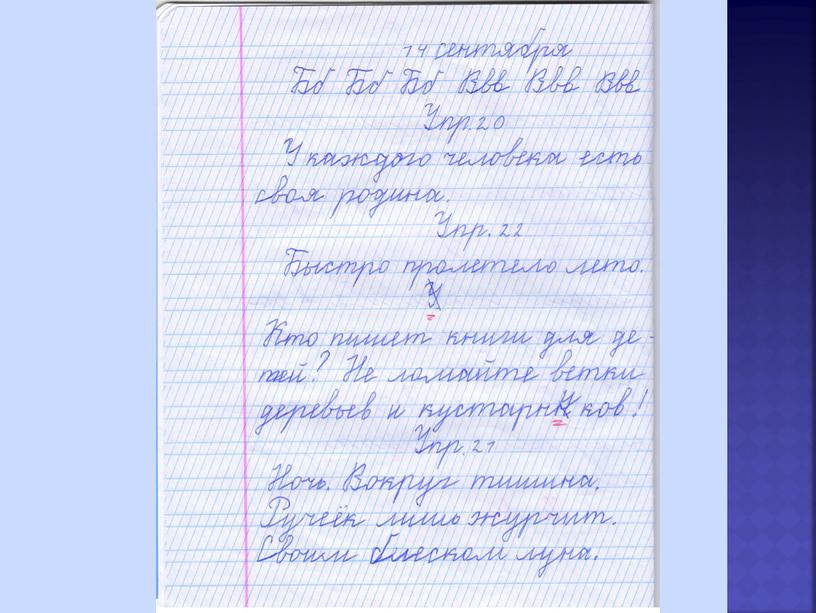 14 сентября
Бб Бб Бб Ввв Ввв Ввв
Упр. 20
У каждого человека есть
своя родина.
Упр. 22
Быстро пролетело лето.
Кто пишет книги для де-
тей? Не ломайте ветки
деревьев и кустарников!
Упр. 21
Ночь. Вокруг тишина.
Ручеёк лишь журчит.
Своим блеском луна.